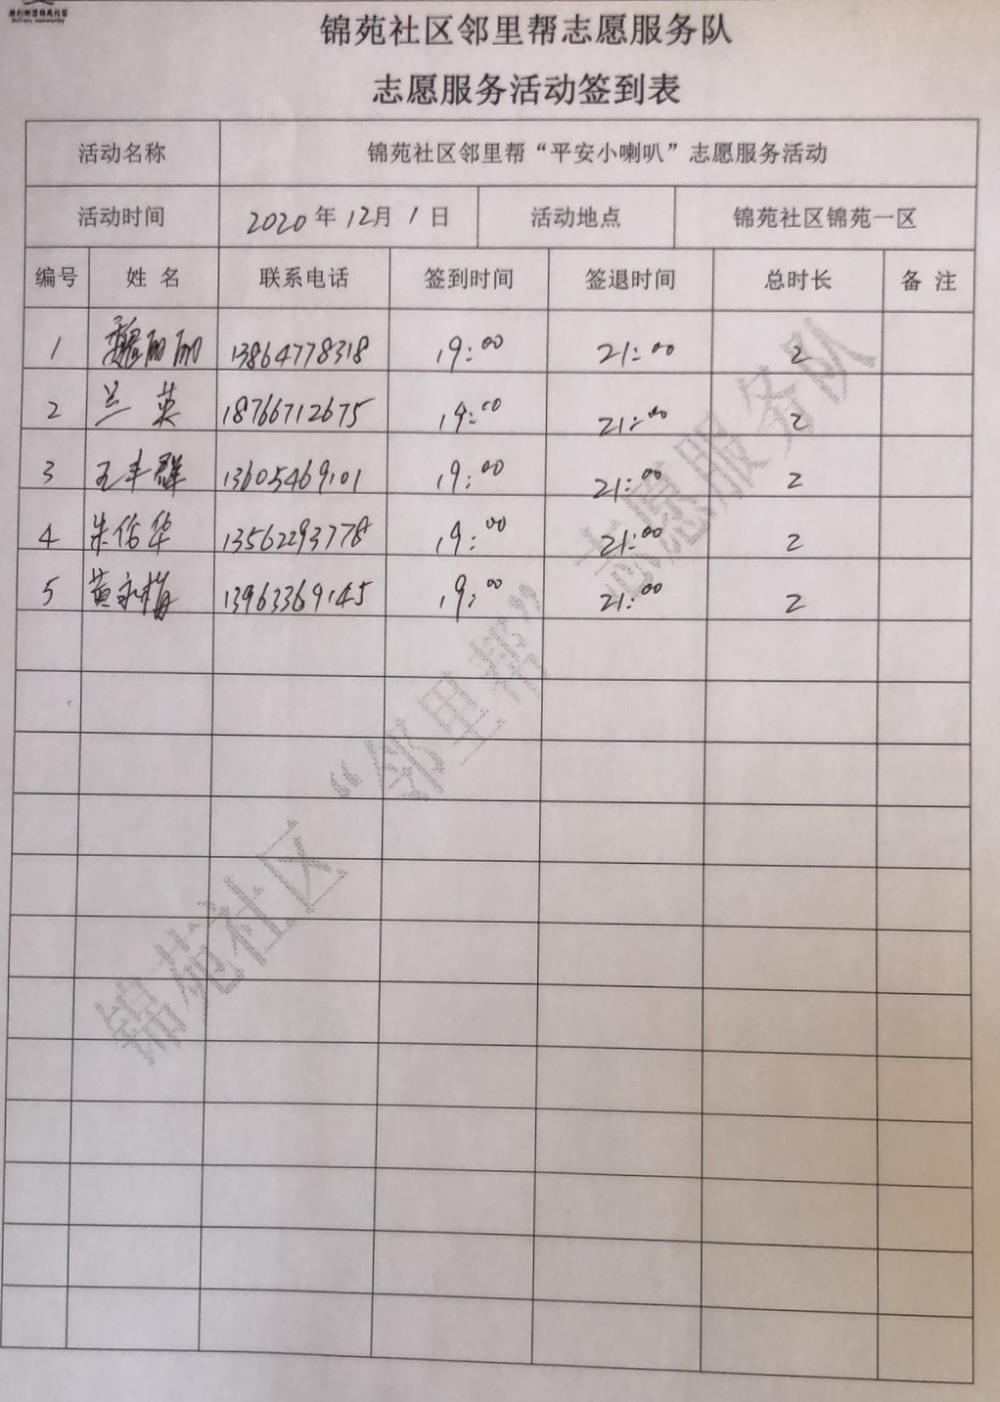 锦苑社区邻里帮志愿服务队
志愿服务活动签到表
活动名称 锦苑社区邻里帮“平安小喇叭”志愿服务活动
活动时间 2020年12月1日 活动地点 锦苑社区锦苑一区
编号 姓名 联系电话 签到时间 签退时间 总时长 备注
1 魏丽丽 13864778318 19:00 21:00 2
2 兰英 18766712675 19:00 21:00 2
3 王丰群 13605469101 19:00 21:00 2
4 朱佑华 13562293778 19:00 21:00 2
5 黄永梅 13963369145 19:00 21:00 2
锦苑社区“邻里帮”志愿服务队